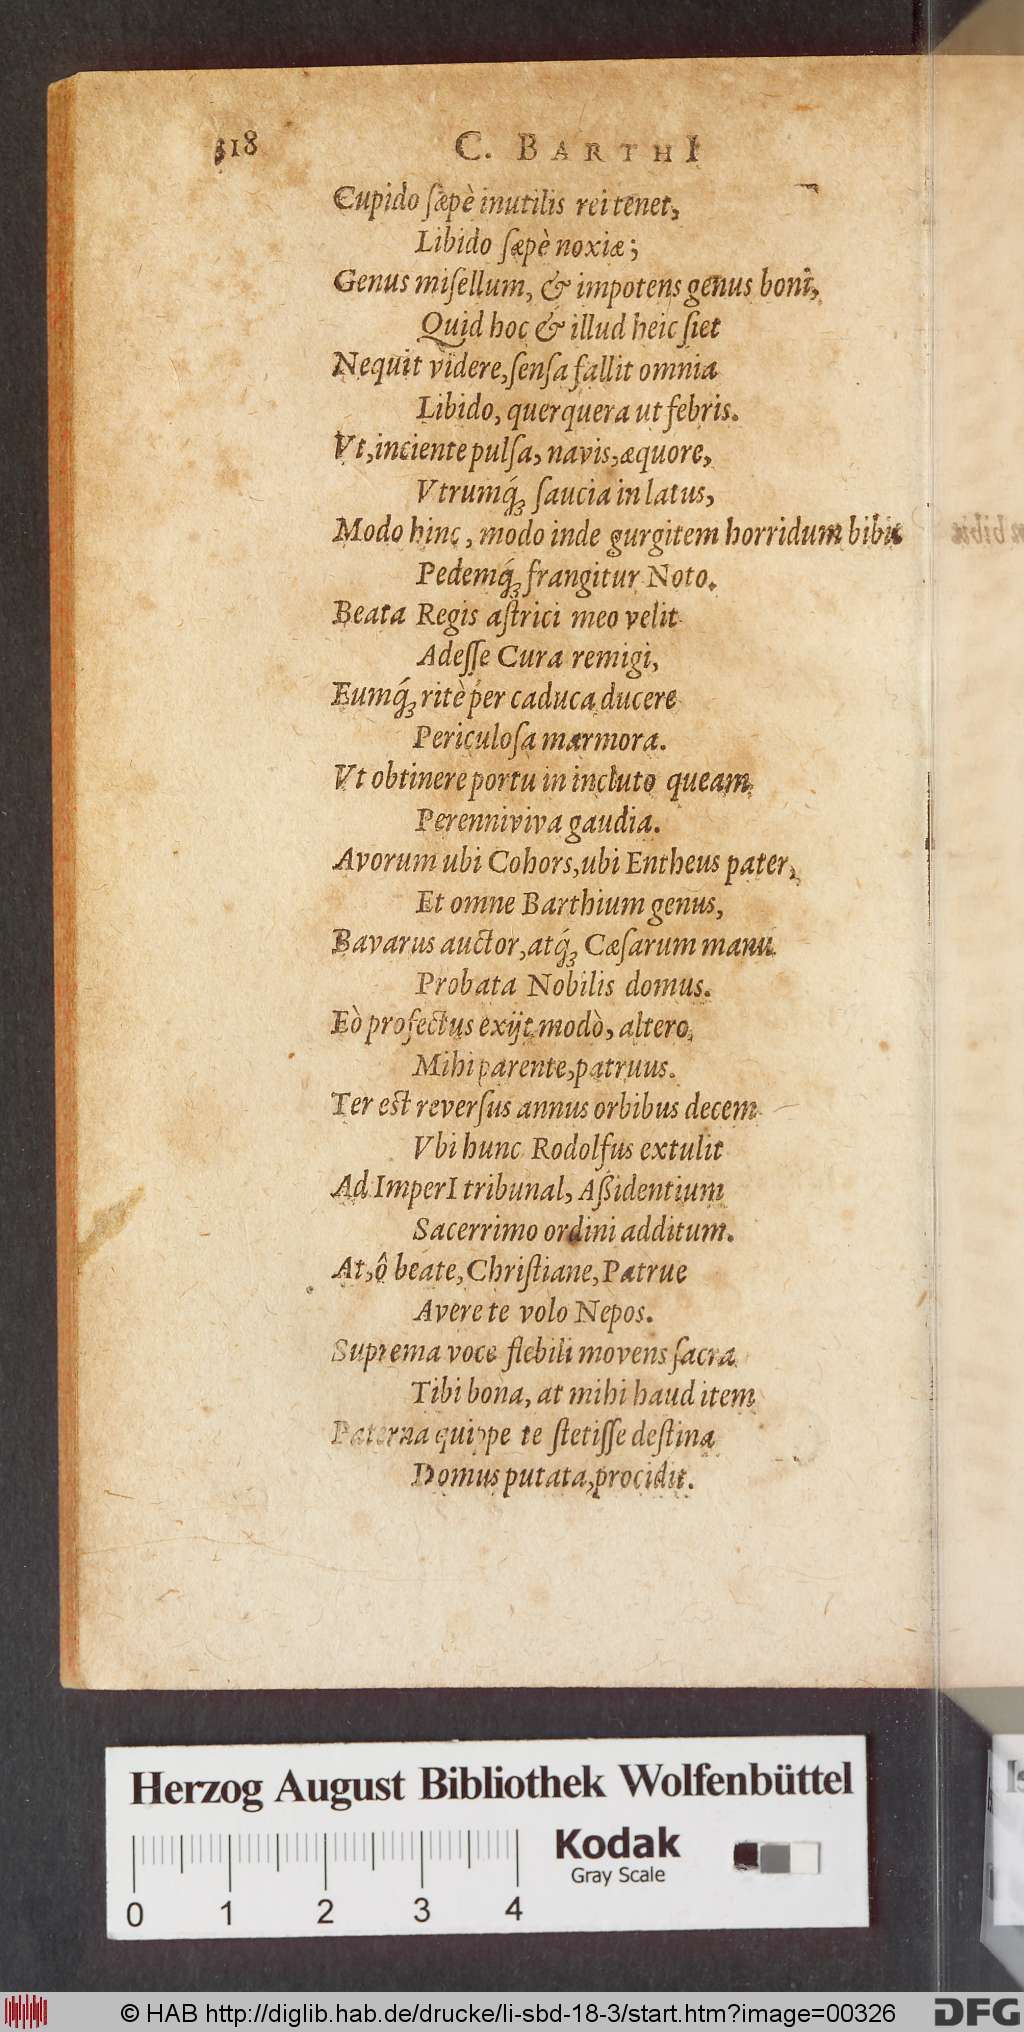 318 C. BARTHI
Cupido ſæpè inutilis rei tenet,
Libido ſæpè noxiæ;
Genus miſellum, & impotens genus boni,
Quid hoc & illud heic ſiet
Nequit videre, ſenſa fallit omnia
Libido, querquera ut febris.
Vt, inciente pulſa, navis, æquore,
Vtrumq́; ſaucia in latus,
Modo hinc, modo inde gurgitem horridum bibit
Pedemq́; frangitur Noto.
Beata Regis aſtrici meo velit
Adeſſe Cura remigi,
Eumq́; ritè per caduca ducere
Periculoſa marmora.
Vt obtinere portu in incluto queam
Perenniviva gaudia.
Avorum ubi Cohors, ubi Entheus pater,
Et omne Barthium genus,
Bavarus auctor, atq́; Cæſarum manu
Probata Nobilis domus.
Eò profectus exijt modò, altero
Mihi parente, patruus.
Ter eſt reverſus annus orbibus decem
Vbi hunc Rodolfus extulit
Ad ImperI tribunal, Aßidentium
Sacerrimo ordini additum.
At, ô beate, Chriſtiane, Patrue
Avere te volo Nepos.
Suprema voce flebili movens ſacra
Tibi bona, at mihi haud item
Paterna quippe te ſtetiſſe deſtina
Domus putata, procidit.
Herzog August Bibliothek Wolfenbüttel
Kodak
Gray Scale
0 1 2 3 4
© HAB http://diglib.hab.de/drucke/li-sbd-18-3/start.htm?image=00326
DFG